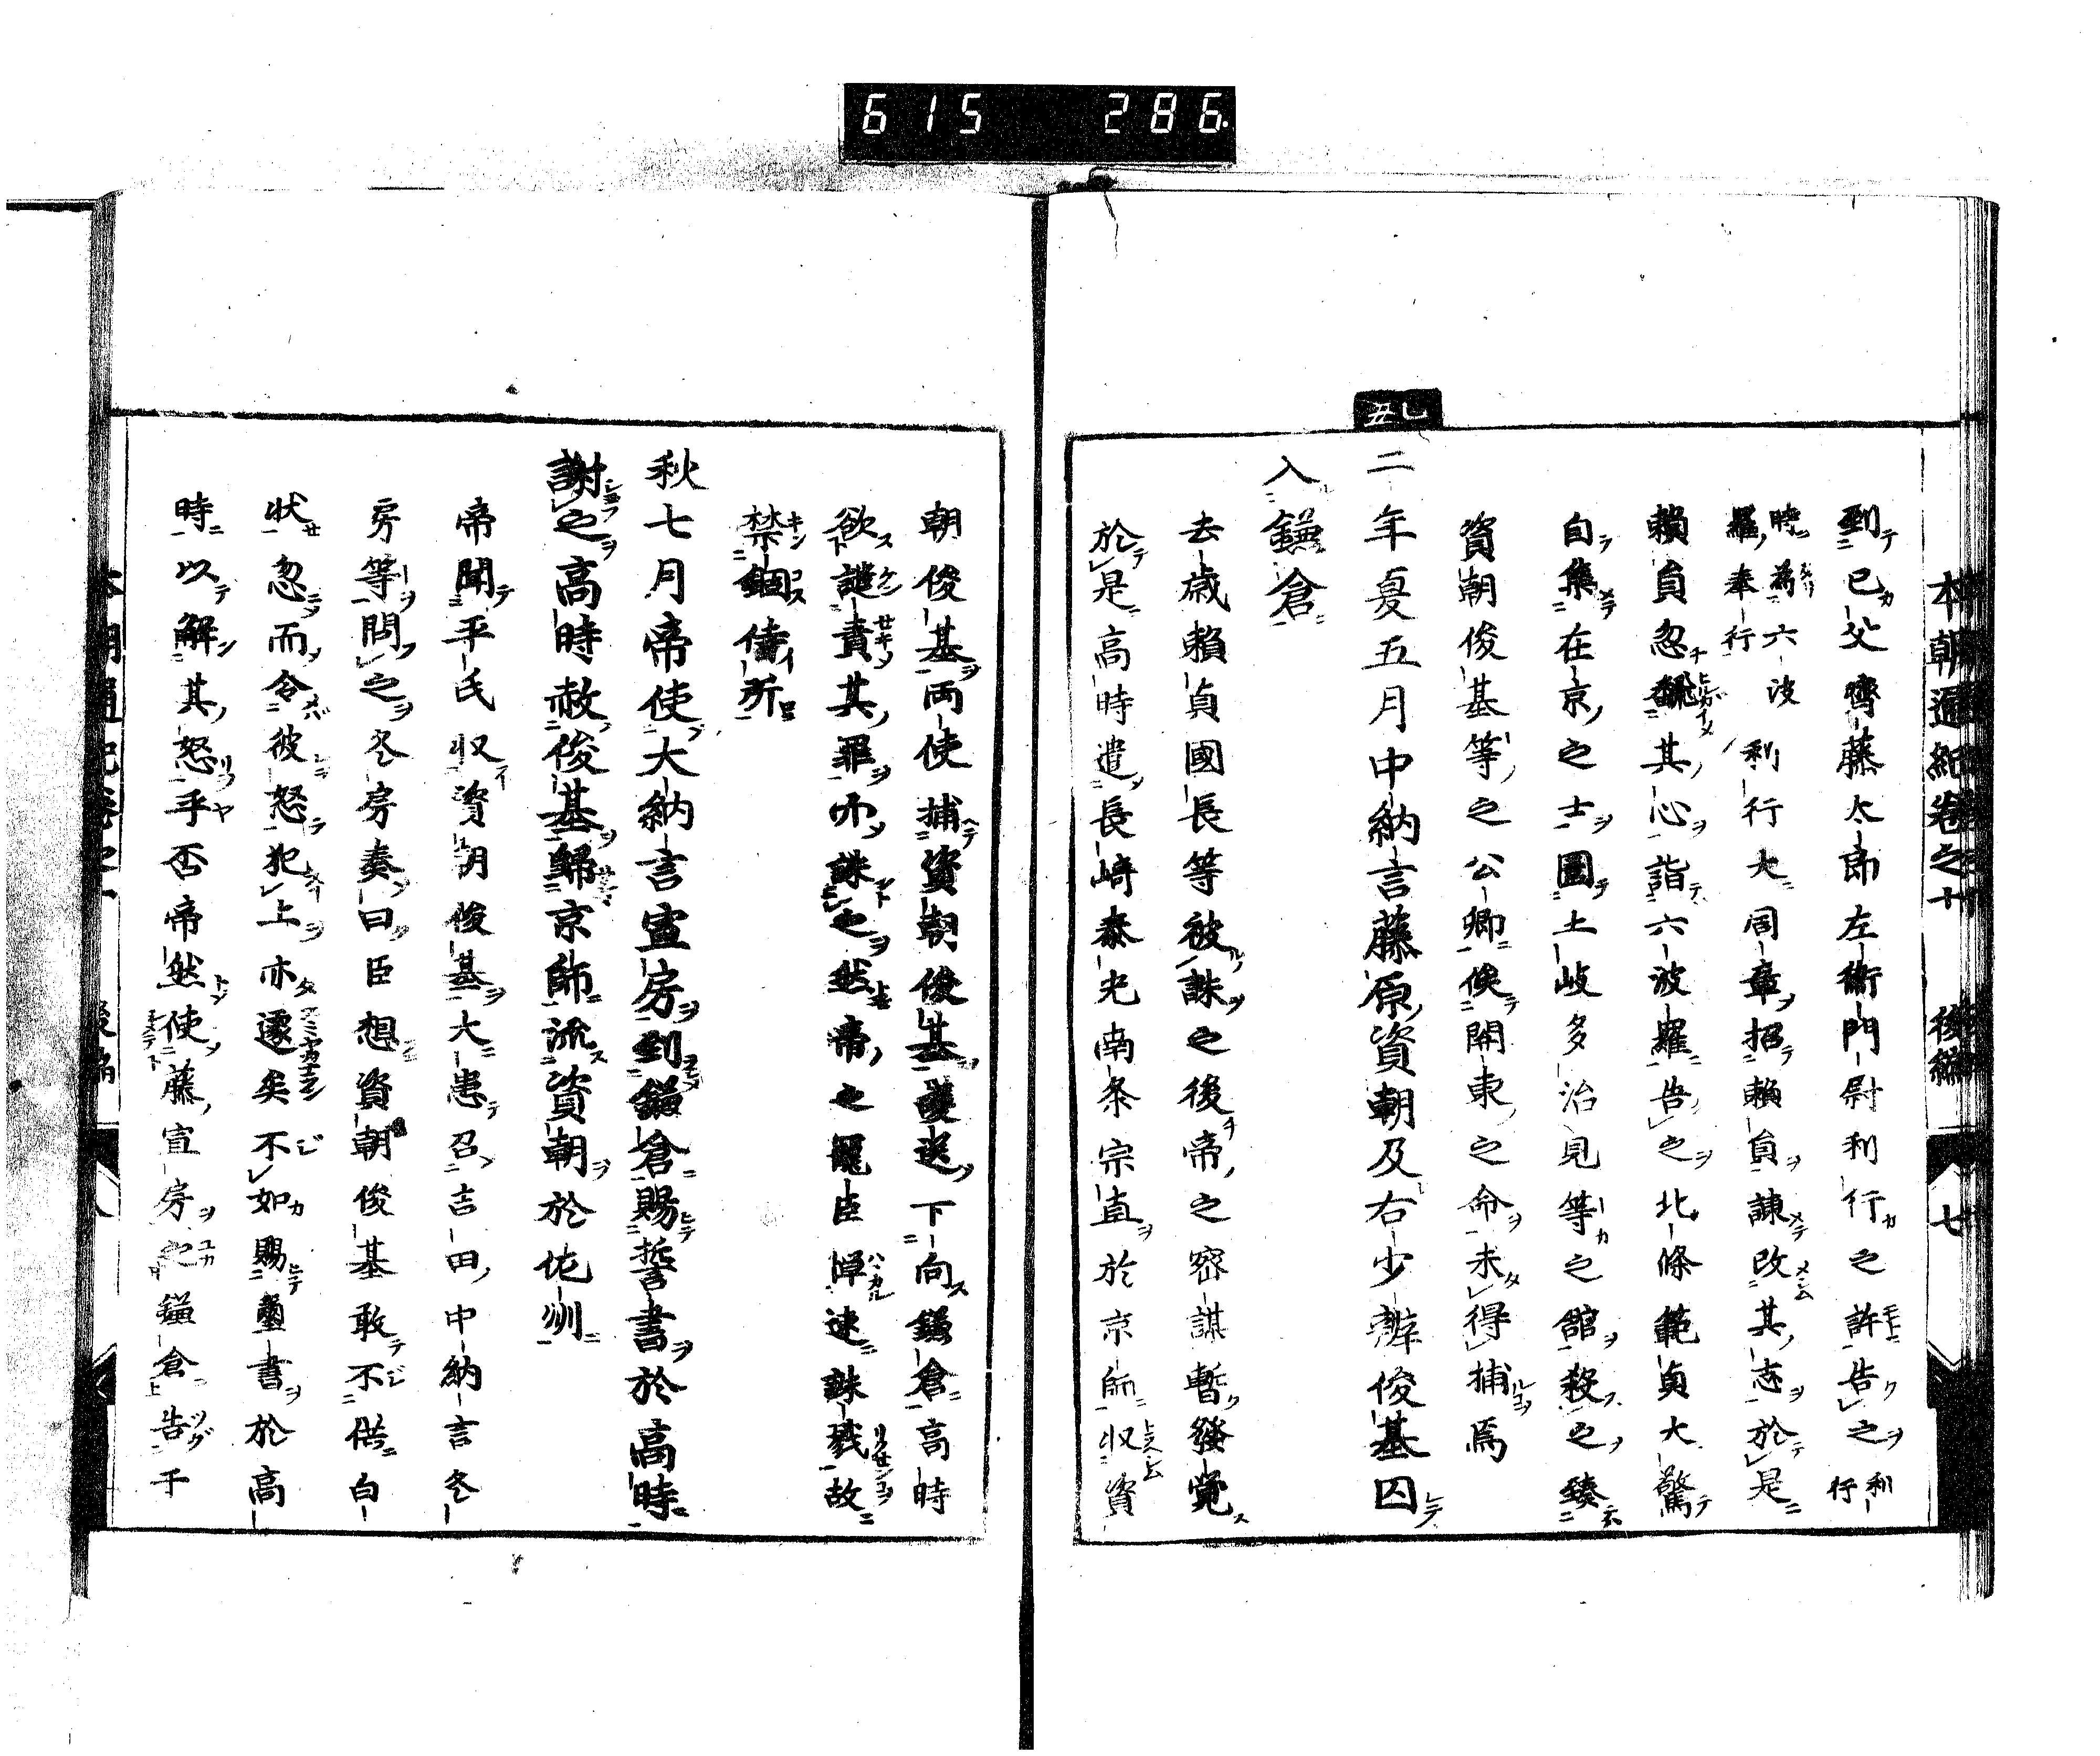 615 286.
本朝通紀卷之十 後編 七
到已父齊藤太郎左衛門尉利行之許告之利行
時為六波羅奉行利行大周章招頼貟諌改其志於是
頼貟忽飜其心詣六波羅告之北條範貞大驚
自集在京之士圍土岐多治見等之舘殺之
資朝俊基等之公卿俟関東之命未得捕焉
乙丑
二年夏五月中納言藤原資朝及右少辨俊基囚
入鎌倉
去歳頼貞國長等被誅之後帝之密謀暫發覺
於是高時遣長﨑泰光南条宗直於京師収資
朝俊基両使捕資朝俊基護送下向鎌倉高時
欲譴責其罪而誅之然帝之寵臣憚速誅戮故
禁錮侍所
秋七月帝使大納言宣房到鎌倉賜誓書於高時
謝之高時赦俊基歸京師流資朝於佐州
帝聞平氏収資朝俊基大患召吉田中納言冬
房等問之冬房奏曰臣想資朝俊基敢不供白
状忽而令彼怒犯上亦遽矣不如賜璽書於高
時以解其怒乎否帝然使藤宣房之鎌倉告于